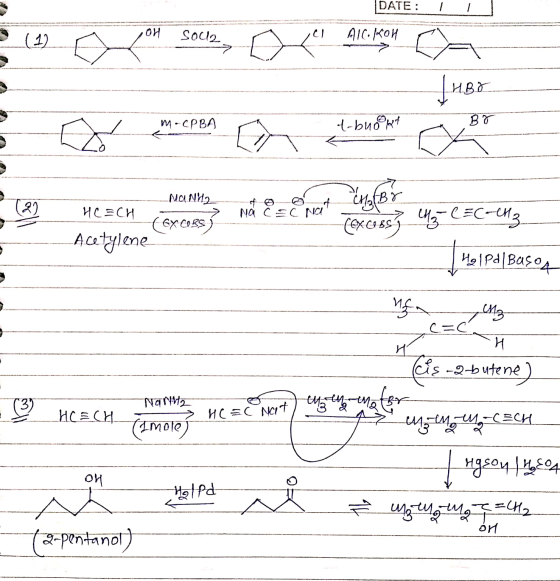 DATE : / /
(1) OH SOCl2 Cl Alc. KOH
HBr
m-CPBA t-buO⊖K+ Br
O
(2) HC≡CH NaNH2 (Excess) Na+ C⊖≡C⊖ Na+ CH3-Br (Excess) CH3-C≡C-CH3
Acetylene
H2|Pd|BaSO4
H3C CH3
C=C
H H
(Cis-2-butene)
(3) HC≡CH NaNH2 (1mole) HC≡C⊖ Na+ CH3-CH2-CH2-Br CH3-CH2-CH2-C≡CH
HgSO4|H2SO4
OH H2|Pd O ⇌ CH3-CH2-CH2-C=CH2
OH
(2-pentanol)